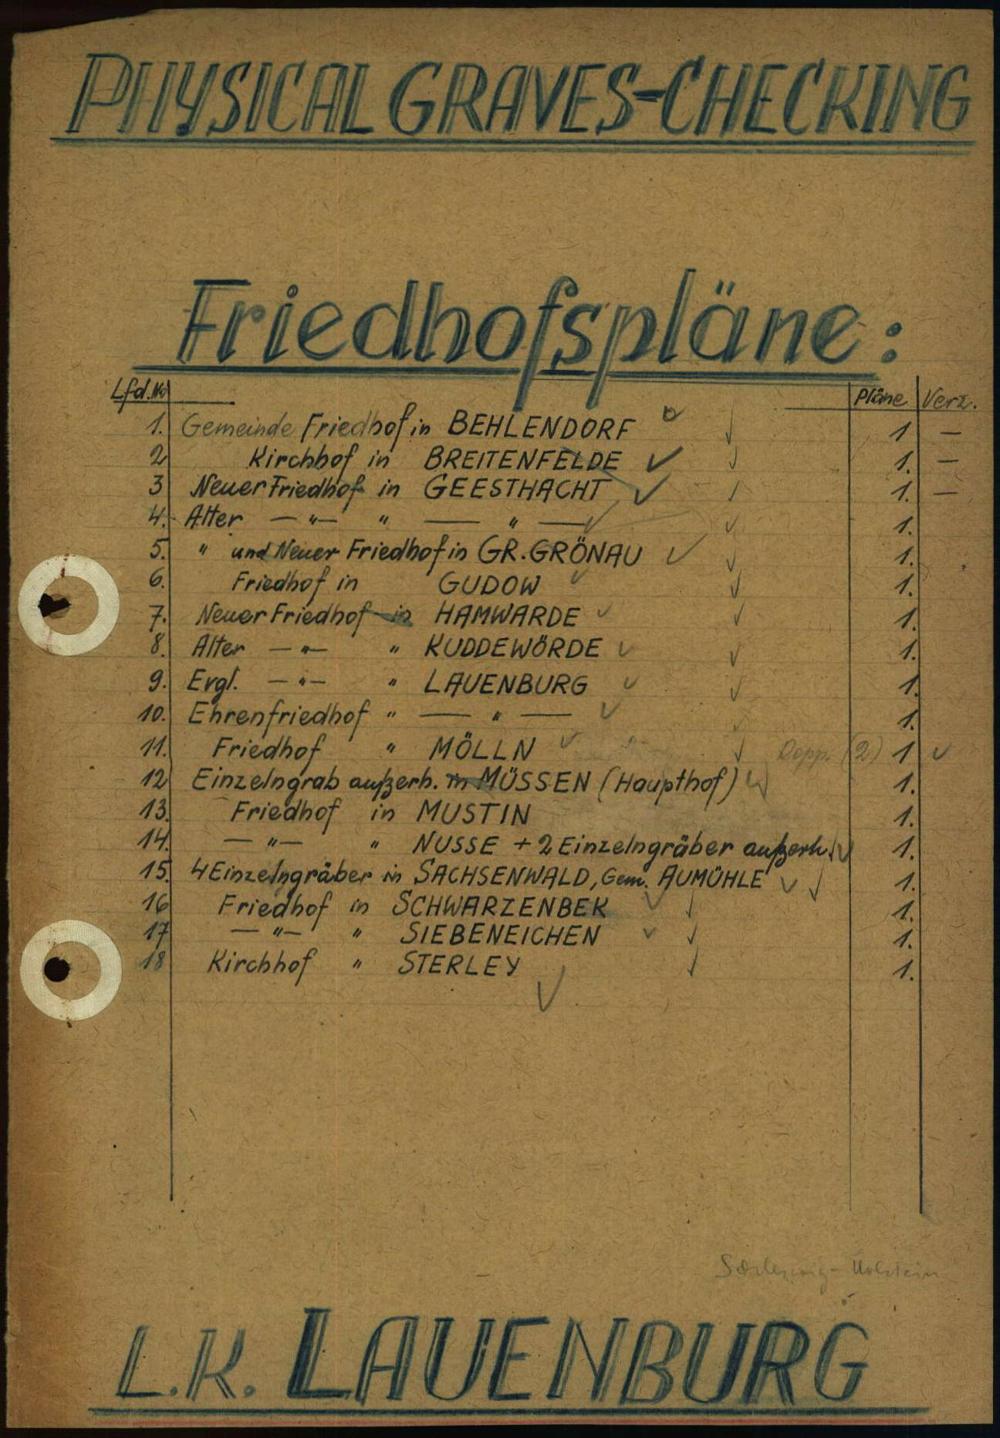 PHYSICAL GRAVES-CHECKING
Friedhofspläne:
Lfd.Nr Pläne Verz.
1. Gemeinde Friedhof in BEHLENDORF 1 —
2 Kirchhof in BREITENFELDE ✓ 1. —
3 Neuer Friedhof in GEESTHACHT ✓ 1. —
4. Alter — " — " — " — 1.
5. " und Neuer Friedhof in GR. GRÖNAU ✓ 1.
6. Friedhof in GUDOW ✓ 1.
7. Neuer Friedhof in HAMWARDE ✓ 1.
8. Alter — " — " KUDDEWÖRDE ✓ 1.
9. Evgl. — " — " LAUENBURG ✓ 1.
10. Ehrenfriedhof " — " — ✓ 1.
11. Friedhof " MÖLLN ✓ Dopp. (2) 1 ✓
12 Einzelngrab außerh. in MÜSSEN (Haupthof) 1.
13. Friedhof in MUSTIN 1.
14. — " — " NUSSE + 2 Einzelngräber außerh. 1.
15. 4 Einzelngräber in SACHSENWALD, Gem. AUMÜHLE ✓ 1.
16 Friedhof in SCHWARZENBEK ✓ 1.
17 — " — " SIEBENEICHEN ✓ 1.
18 Kirchhof " STERLEY 1.
Schleswig-Holstein
L.K. LAUENBURG